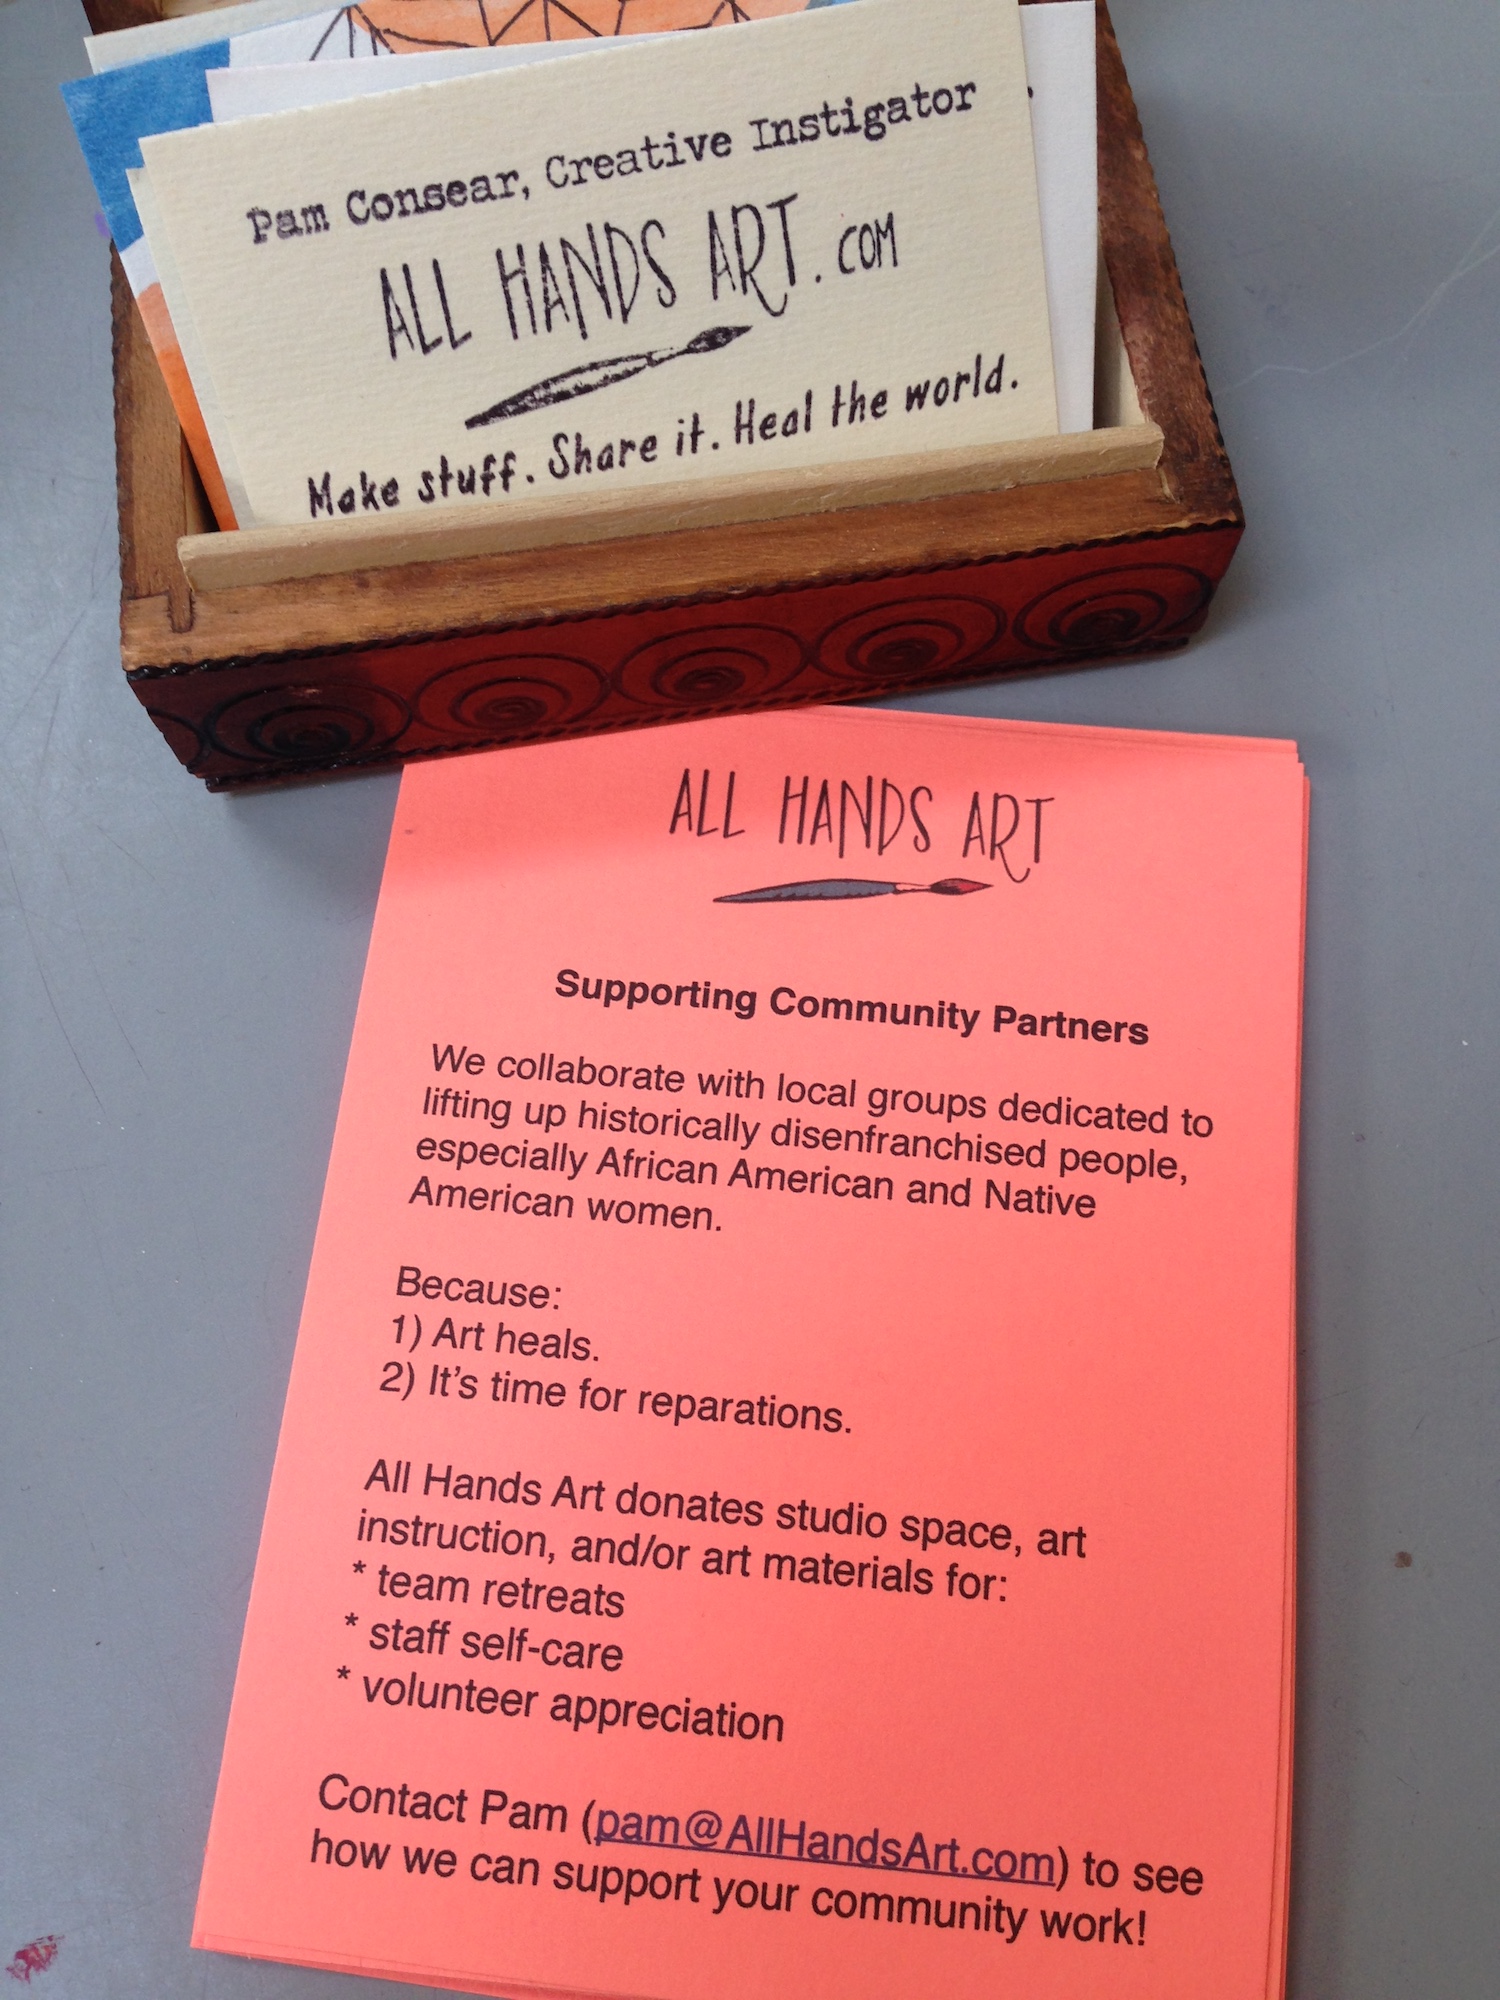 Pam Consear, Creative Instigator
ALL HANDS ART.COM
Make stuff. Share it. Heal the world.
ALL HANDS ART
Supporting Community Partners
We collaborate with local groups dedicated to
lifting up historically disenfranchised people,
especially African American and Native
American women.
Because:
1) Art heals.
2) It's time for reparations.
All Hands Art donates studio space, art
instruction, and/or art materials for:
* team retreats
* staff self-care
* volunteer appreciation
Contact Pam (pam@AllHandsArt.com) to see
how we can support your community work!